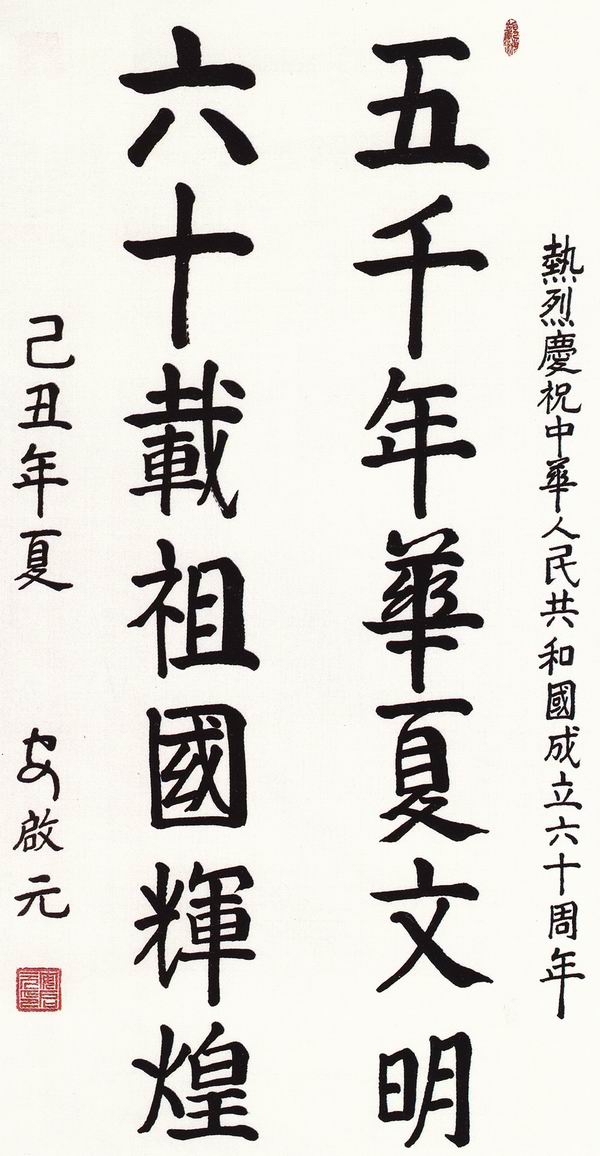 熱烈慶祝中華人民共和國成立六十周年
五千年華夏文明
六十載祖國輝煌
己丑年夏
安啟元